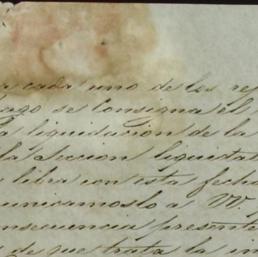 a cada uno de los re
pago se consigna el
a liquidacion de la
la Seccion liquida
libra con esta fecha
unicamoslo a V.
onsecuencia presente
de que trata la in